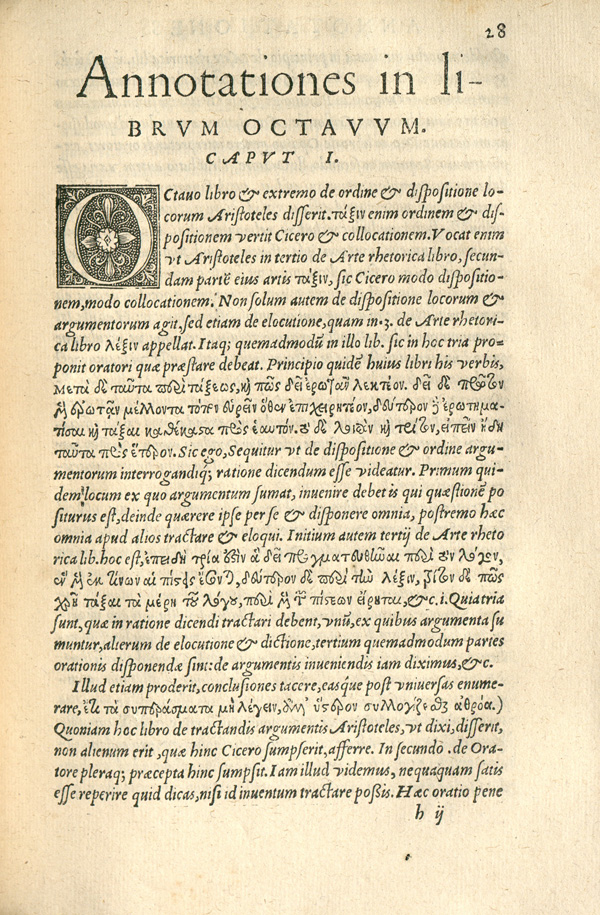 28
Annotationes in li-
BRVM OCTAVVM.
CAPVT I.
OCtauo libro & extremo de ordine & dispositione lo-
corum Aristoteles disserit. τάξιν enim ordinem & dis-
positionem vertit Cicero & collocationem. Vocat enim
vt Aristoteles in tertio de Arte rhetorica libro, secun-
dam partē eius artis τάξιν, sic Cicero modo dispositio-
nem, modo collocationem. Non solum autem de dispositione locorum &
argumentorum agit, sed etiam de elocutione, quam in .3. de Arte rhetori-
ca libro λέξιν appellat. Itaq; quemadmodū in illo lib. sic in hoc tria pro-
ponit oratori quæ præstare debeat. Principio quidē huius libri his verbis,
Μετὰ δὲ ταῦτα περὶ τάξεως, κὴ πῶς δεῖ ἐρωτᾶν λεκτέον. δεῖ δὲ πρῶτον
μὲν ἐρωτᾶν μέλλοντα τόπον εὑρεῖν ὅθεν ἐπιχειρητέον, δεύτερον ἢ ἐρωτημα-
τίσαι κὴ τάξαι καθέκαστα πρὸς ἑαυτόν. τὸ δὲ λοιπὸν κὴ τρίτον, εἰπεῖν ἤδη
ταῦτα πρὸς ἕτερον. Sic ego, Sequitur vt de dispositione & ordine argu-
mentorum interrogandiq; ratione dicendum esse videatur. Primum qui-
dem locum ex quo argumentum sumat, inuenire debet is qui quæstionē po
siturus est, deinde quærere ipse per se & disponere omnia, postremo hæc
omnia apud alios tractare & eloqui. Initium autem tertij de Arte rheto
rica lib. hoc est, ἐπειδὴ τρία ἐστὶν ἃ δεῖ πραγματευθῆναι περὶ τὸν λόγον,
ἓν μὲν ἐκ τίνων αἱ πίστεις ἔσονται, δεύτερον δὲ περὶ τὴν λέξιν, τρίτον δὲ πῶς
χρὴ τάξαι τὰ μέρη τοῦ λόγου, περὶ μὲν τῶν πίστεων εἴρηται, &c. i. Quia tria
sunt, quæ in ratione dicendi tractari debent, vnū, ex quibus argumenta su
muntur, alterum de elocutione & dictione, tertium quemadmodum partes
orationis disponendæ sint: de argumentis inueniendis iam diximus, &c.
Illud etiam proderit, conclusiones tacere, easque post vniuersas enume-
rare, ἔτι τὰ συμπεράσματα μὴ λέγειν, ἀλλ' ὕστερον συλλογίζεσθαι ἀθρόα.)
Quoniam hoc libro de tractandis argumentis Aristoteles, vt dixi, disserit,
non alienum erit, quæ hinc Cicero sumpserit, afferre. In secundo .de Ora-
tore pleraq; præcepta hinc sumpsit. Iam illud videmus, nequaquam satis
esse reperire quid dicas, nisi id inuentum tractare possis. Hæc oratio pene
h ij